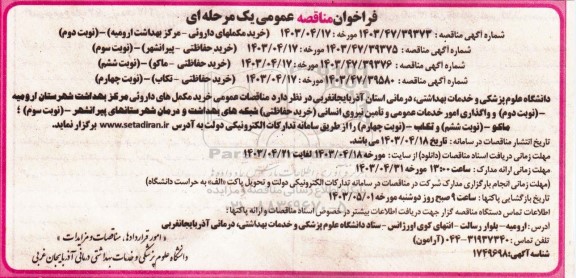 فراخوان مناقصه عمومی یک مرحله ای
شماره آگهی مناقصه : ۱۴۰۳/۴۷/۳۹۳۷۳ مورخه : ۱۴۰۳/۰۴/۱۷ (خرید مکملهای داروئی - مرکز بهداشت ارومیه) - (نوبت دوم)
شماره آگهی مناقصه : ۱۴۰۳/۴۷/۳۹۳۷۵ مورخه : ۱۴۰۳/۰۴/۱۷ (خرید حفاظتی - پیرانشهر) - (نوبت سوم)
شماره آگهی مناقصه : ۱۴۰۳/۴۷/۳۹۳۷۶ مورخه : ۱۴۰۳/۰۴/۱۷ (خرید حفاظتی - ماکو) - (نوبت ششم)
شماره آگهی مناقصه : ۱۴۰۳/۴۷/۳۹۵۸۰ مورخه : ۱۴۰۳/۰۴/۱۷ (خرید حفاظتی - تکاب) - (نوبت چهارم)
دانشگاه علوم پزشکی و خدمات بهداشتی، درمانی استان آذربایجانغربی در نظر دارد مناقصات عمومی خرید مکمل های داروئی مرکز بهداشت شهرستان ارومیه
- (نوبت دوم) و واگذاری امور خدمات عمومی و تأمین نیروی انسانی (خرید حفاظتی) شبکه های بهداشت و درمان شهرستانهای پیرانشهر - (نوبت سوم) ؛
ماکو - (نوبت ششم) و تکاب - (نوبت چهارم) را از طریق سامانه تدارکات الکترونیکی دولت به آدرس www.setadiran.ir برگزار نماید.
تاریخ انتشار مناقصات در سامانه : تاریخ ۱۴۰۳/۰۴/۱۸ می باشد.
مهلت زمانی دریافت اسناد مناقصات (دانلود) از سایت : مورخه ۱۴۰۳/۰۴/۱۸ لغایت ۱۴۰۳/۰۴/۲۱
مهلت زمانی ارائه مدارک : ساعت ۱۳:۰۰ مورخه ۱۴۰۳/۰۴/۳۱
(مهلت زمانی انجام بارگزاری مدارک شرکت در مناقصات در سامانه تدارکات الکترونیکی دولت و تحویل پاکت «الف» به حراست دانشگاه)
تاریخ بازگشایی پاکتها : ساعت ۹ صبح روز دوشنبه مورخه ۱۴۰۳/۰۵/۰۱
اطلاعات تماس دستگاه مناقصه گزار جهت دریافت اطلاعات بیشتر در خصوص اسناد مناقصات و ارائه پاکتها :
آدرس : ارومیه - بلوار رسالت - انتهای کوی اورژانس - ستاد دانشگاه علوم پزشکی و خدمات بهداشتی، درمانی آذربایجانغربی
تلفن : ۳۱۹۳۷۳۴۰-۰۴۴ (آرامون)
شناسه آگهی : ۱۷۴۹۶۹۸
« امور قراردادها، مناقصات و مزایدات »
دانشگاه علوم پزشکی و خدمات بهداشتی درمانی آذربایجان غربی